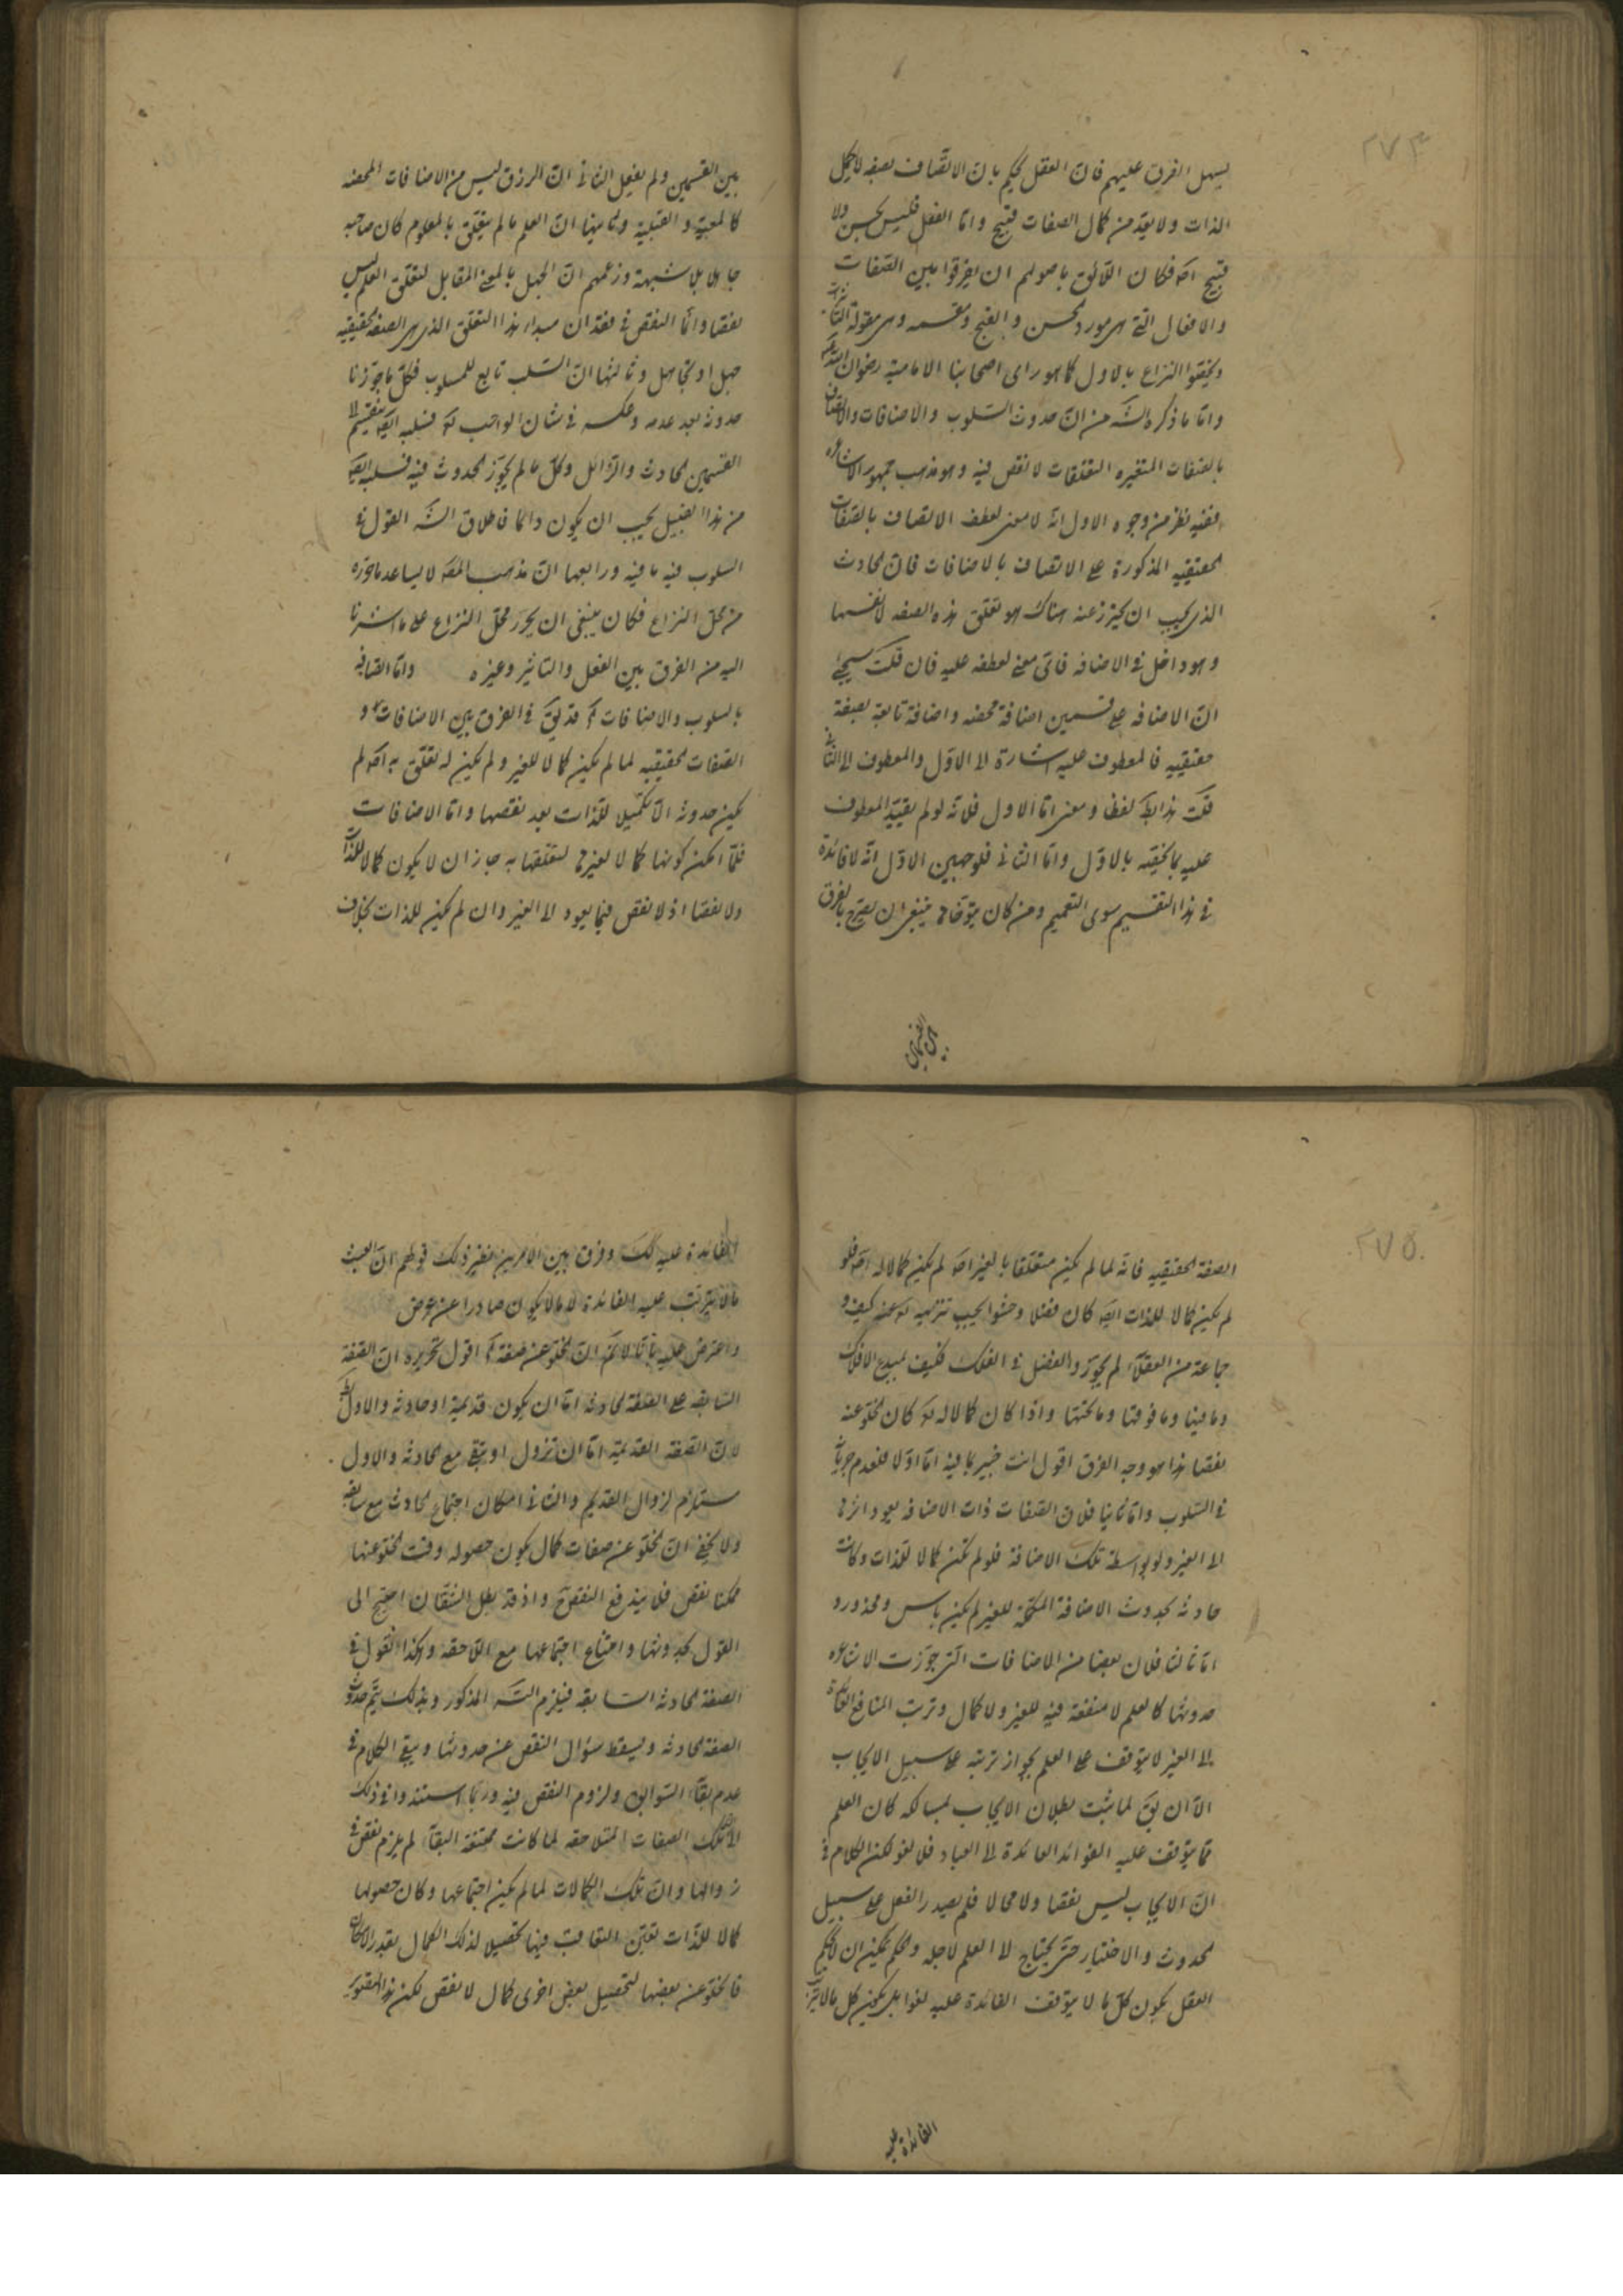 ٢٧٤
يسهل الفرق عليهم فان العقل يحكم بان الاتصاف بصفه لا يكمل
الذات ولا يعدّ من كمال الصفات قبيح واما الفعل فليس بحسن ولا
قبيح اصلا فكان اللائق باصولهم ان يفرقوا بين الصفات
والافعال التي هي مورد الحسن والقبح ومقسمه وهي مقولة التأثير
ويخيقوا النزاع بالاول كما هو راى اصحابنا الامامية رضوان الله عليهم
واما ما ذكره الشه من ان حدوث السلوب والاضافات والاتصاف
بالصفات المتغيره التعلقات لا نقص فيه وهو مذهب جمهور الاشاعره
ففيه نظر من وجوه الاول انه لا معنى لعطف الاتصاف بالصفات
الحقيقيه المذكورة على الاتصاف بالاضافات فان الحادث
الذى يجب ان يحترز عنه هناك هو تعلق هذه الصفه لا نفسها
وهو داخل في الاضافه فاى معنى لعطفه عليه فان قلت سيجئ
ان الاضافه على قسمين اضافة محضه واضافة تابعة بصفة
حقيقيه فالمعطوف عليه اشارة الى الاول والمعطوف الى الثانى
قلت هذا بط لفظا ومعنى اما الاول فلانه لو لم يقيد المعطوف
عليه بما يخصّه بالاول واما الثانى فلوجهين الاول انه لا فائدة
في هذا التقسيم سوى التعميم ومن كان متوقفا منبغى ان يصرح بالفرق
بين القسمين
بين القسمين ولم يفعل الثانى ان الرزق ليس من الاضافات المحضه
كالمعية والقبلية وثانيها ان العلم ما لم يتعلق بالمعلوم كان صاحبه
جاهلا بلا شبهة وزعمهم ان الجهل بالمعنى المقابل لتعلق العلم ليس
نقصا وانما النقص في فقدان مبداء هذا التعلق الذى هى الصفه الحقيقيه
جهل او تجاهل وثالثها ان السلب تابع للمسلوب فكل ما جوزنا
حدوثه بعد عدمه وعكسه في شان الواجب تع فسلبه ايضا ينقسم الى
القسمين الحادث والزائل وكل ما لم يجوز الحدوث فيه فسلبه ايضا
من هذا القبيل يجب ان يكون دائما فاطلاق الشه القول في
السلوب فيه ما فيه ورابعها ان مذهب المصه لا يساعد ما حرّره
من محل النزاع فكان ينبغى ان يحرر محل النزاع على ما اشرنا
اليه من الفرق بين الفعل والتاثير وغيره واما اتصافه
بالسلوب والاضافات الخ قد يق في الفرق بين الاضافات و
الصفات الحقيقيه لما لم يكن كمالا للغير ولم يكن له تعلق به اصلا لم
يكن حدوثه الا تكميلا للذات بعد نقصها واما الاضافات
فلما امكن كونها كمالا لغيره لتعلقها به جاز ان لا يكون كمالا للذات
ولا نقصا اذ لا نقص فيما يعود الى الغير وان لم يكن للذات بخلاف
٢٧٥
الصفة الحقيقيه فانه لما لم يكن متعلقا بالغير اصلا لم يكن كمالا له اصلا فلو
لم يكن كمالا للذات ايضا كان فضلا وحشوا يجب تنزيهه تع عنه كيف و
جماعة من العقلاء لم يجوزوا الفضل في الفلك فكيف لمبدع الافلاك
وما فيها وما فوقها وما تحتها واذا كان كمالا له تع كان الخلو عنه
نقصا هذا هو وجه الفرق اقول انت خبير بما فيه اما اولا فلعدم جريانه
في السلوب واما ثانيا فلان الصفات ذات الاضافه يعود اثرها
الى الغير ولو بواسطة تلك الاضافة فلو لم تكن كمالا للذات وكانت
حادثه بحدوث الاضافة المكملة للغير لم يكن باس ومحذور و
اما ثالثا فلان بعضا من الاضافات التى جوزت الاشاعره
حدوثها كالعلم لا منفعة فيه للغير ولا كمال وترتب المنافع العائدة
الى الغير لا يتوقف على العلم بجواز ترتبه على سبيل الايجاب
الا ان يق لما ثبت بطلان الايجاب بمسالكه كان العلم
مما يتوقف عليه الفوائد العائدة الى العباد فلا لغو لكن الكلام في
ان الايجاب ليس نقصا ولا محالا فلم يصدر الفعل على سبيل
الحدوث والاختيار حتى يحتاج الى العلم لاجله والحكم يمكن ان لا يحكم
العقل بكون كل ما لا يتوقف الفائدة عليه لغوا بل يكون كل ما لا يترتب
الفائدة عليه
الفائدة عليه كك وفرق بين الامرين نظير ذلك قولهم ان العبث
ما لا يترتب عليه الفائدة لا ما لا يكون صادرا عن غرض
واعترض عليه بانا لا نم ان الخلو عن صفة الخ اقول تحريره ان الصفة
السابقه على الصفة الحادثه اما ان يكون قديمة او حادثه والاول بط
لان الصفة القديمة اما ان تزول او تبقى مع الحادثه والاول
مستلزم لزوال القديم والثانى امكان اجتماع الحادث مع سابقه
ولا يخفى ان الخلو عن صفات كمال يكون حصوله وقت الخلو عنها
ممكنا نقص فلا يندفع النقض واذ قد بطل الشقان احتيج الى
القول بحدوثها وامتناع اجتماعها مع اللاحقه وهكذا القول في
الصفة الحادثه السابقه فيلزم التسه المذكور وبذلك يتم حدوث
الصفة الحادثه ويسقط سؤال النقص عن حدوثها ويبقى الكلام في
عدم بقاء السوابق ولزوم النقص فيه وربما استندوا في ذلك
الى ان تلك الصفات المتلاحقه لما كانت ممتنعة البقاء لم يلزم نقص في
زوالها وان تلك الكمالات لما لم يمكن اجتماعها وكان حصولها
كمالا للذات تعيّن التعاقب فيها تحصيلا لذلك الكمال بقدر الامكان
فالخلو عن بعضها لتحصيل بعض اخرى كمال لا نقص لكن هذا التصوير